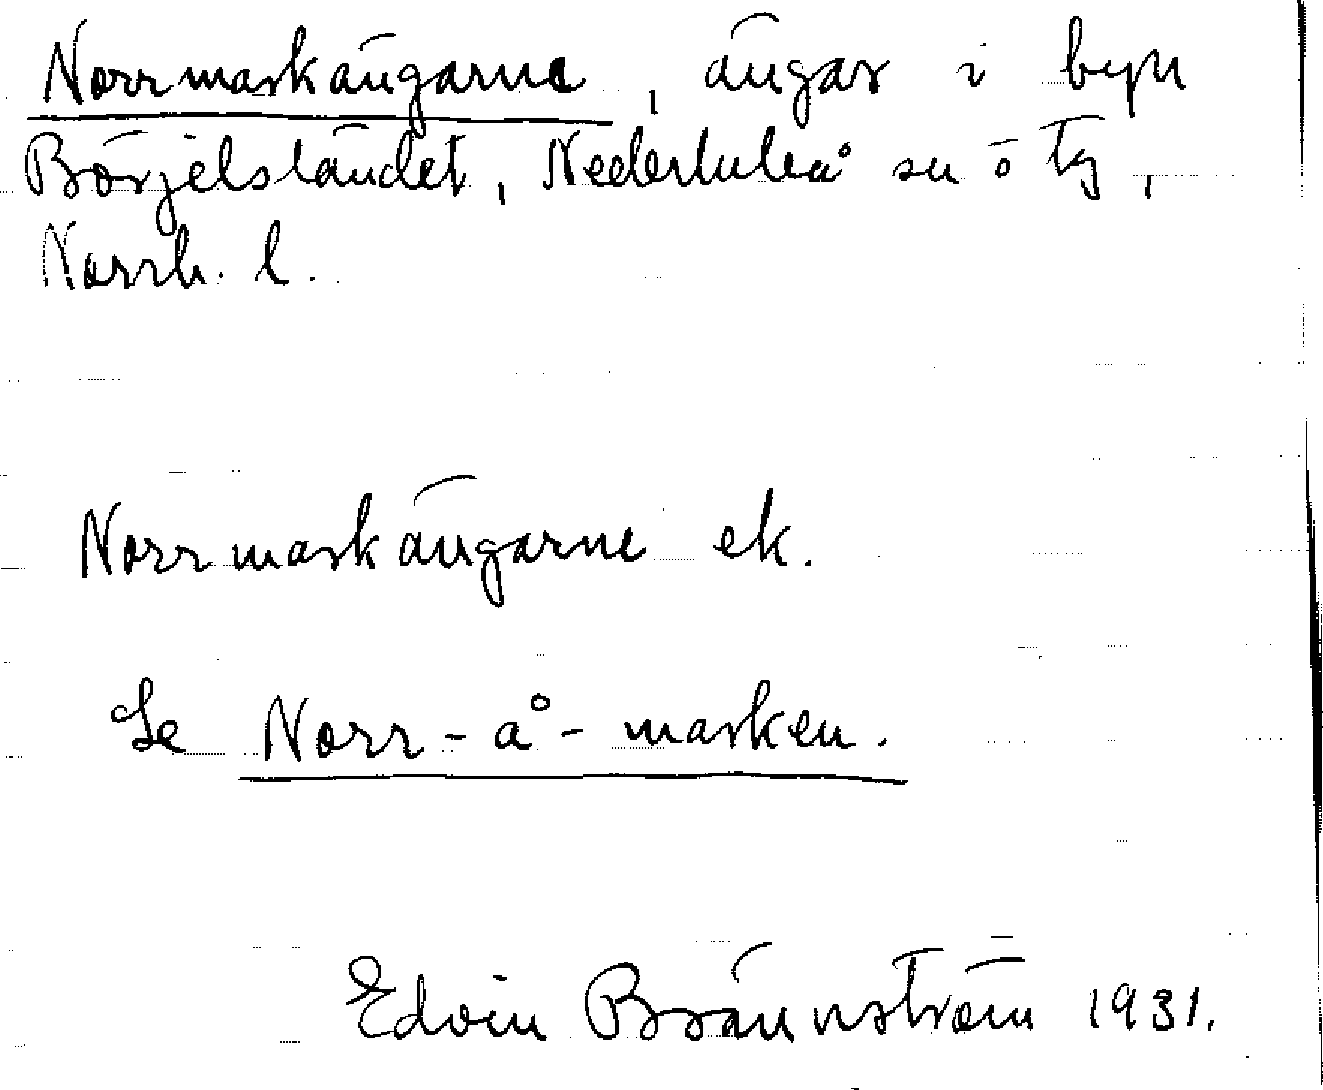 Norrmarkängarne, ängar i byn
Börjelslandet, Nederluleå sn ö tg,
Norrb. l.
Norrmarkängarne ek.
Se Norr-å-marken.
Edvin Brännström 1931.